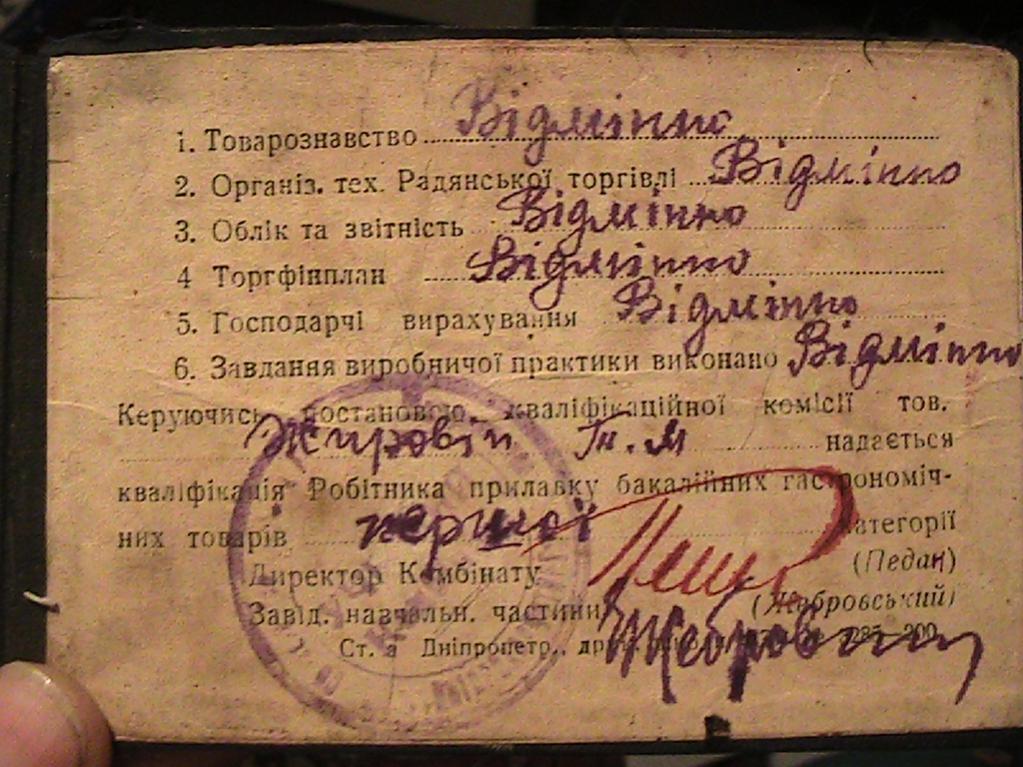 1. Товарознавство Відмінно
2. Організ. тех. Радянської торгівлі Відмінно
3. Облік та звітність Відмінно
4 Торгфінплан Відмінно
5. Господарчі вирахування Відмінно
6. Завдання виробничої практики виконано Відмінно
Керуючись постановою кваліфікаційної комісії тов.
надається
кваліфікація Робітника прилавку бакалійних гастрономіч-
них товарів першої категорії
Директор Комбінату (Педан)
Завід. навчальн. частини (Жебровський)
Дніпропетр.,